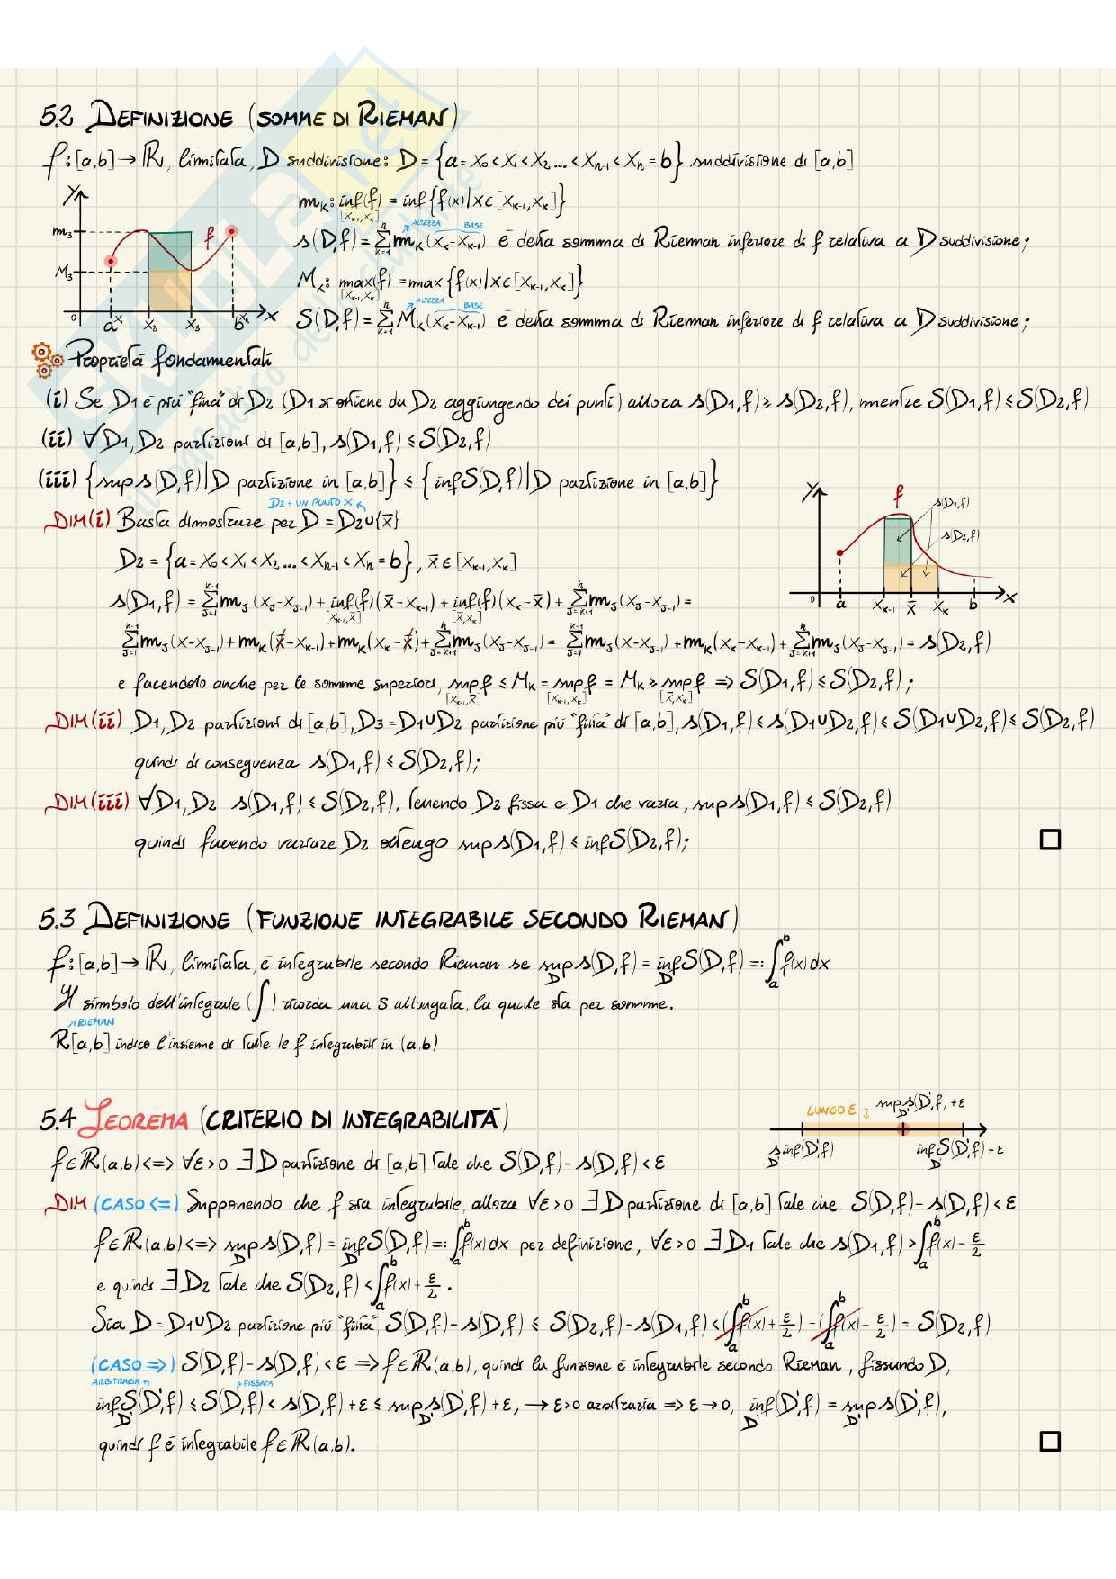 5.2 DEFINIZIONE (SOMME DI RIEMAN)
f:[a,b]→ℝ, limitata, D suddivisione: D={a=x₀<x₁<x₂...<xₙ₋₁<xₙ=b} suddivisione di [a,b]
mₖ: inf(f) = inf{f(x)|x∈[xₖ₋₁,xₖ]}
[xₖ₋₁,xₖ]
ALTEZZA BASE
s(D,f) = Σₖ₌₁ⁿ mₖ(xₖ-xₖ₋₁) è detta somma di Rieman inferiore di f relativa a D suddivisione;
Mₖ: max(f) = max{f(x)|x∈[xₖ₋₁,xₖ]}
[xₖ₋₁,xₖ]
ALTEZZA BASE
S(D,f) = Σₖ₌₁ⁿ Mₖ(xₖ-xₖ₋₁) è detta somma di Rieman inferiore di f relativa a D suddivisione;
y m₃ M₃ f 0 a x b x
Proprietà fondamentali
(i) Se D₁ è più "fina" di D₂ (D₁ si ottiene da D₂ aggiungendo dei punti) allora s(D₁,f) ≥ s(D₂,f), mentre S(D₁,f) ≤ S(D₂,f)
(ii) ∀D₁,D₂ partizioni di [a,b], s(D₁,f) ≤ S(D₂,f)
(iii) {sup s(D,f)|D partizione in [a,b]} ≤ {inf S(D,f)|D partizione in [a,b]}
D₂ + UN PUNTO
DIM(i) Basta dimostrare per D = D₂∪{x̄}
D₂ = {a=x₀<x₁<x₂...<xₙ₋₁<xₙ=b}, x̄∈[xₖ₋₁,xₖ]
s(D₁,f) = Σⱼ₌₁ᵏ⁻¹ mⱼ(xⱼ-xⱼ₋₁) + inf(f)(x̄-xₖ₋₁) + inf(f)(xₖ-x̄) + Σⱼ₌ₖ₊₁ⁿ mⱼ(xⱼ-xⱼ₋₁) =
[xₖ₋₁,x̄] [x̄,xₖ]
Σⱼ₌₁ᵏ⁻¹ mⱼ(x-xⱼ₋₁) + mₖ(x̄-xₖ₋₁) + mₖ(xₖ-x̄) + Σⱼ₌ₖ₊₁ⁿ mⱼ(xⱼ-xⱼ₋₁) = Σⱼ₌₁ᵏ⁻¹ mⱼ(x-xⱼ₋₁) + mₖ(xₖ-xₖ₋₁) + Σⱼ₌ₖ₊₁ⁿ mⱼ(xⱼ-xⱼ₋₁) = s(D₂,f)
e facendolo anche per le somme superiori, sup f ≤ Mₖ = sup f = Mₖ ≥ sup f ⇒ S(D₁,f) ≤ S(D₂,f);
[xₖ₋₁,x̄] [xₖ₋₁,xₖ] [x̄,xₖ]
y f s(D₁,f) s(D₂,f) 0 a xₖ₋₁ x̄ xₖ b x
DIM(ii) D₁,D₂ partizioni di [a,b], D₃=D₁∪D₂ partizione più "fina" di [a,b], s(D₁,f) ≤ s(D₁∪D₂,f) ≤ S(D₁∪D₂,f) ≤ S(D₂,f)
quindi di conseguenza s(D₁,f) ≤ S(D₂,f);
DIM(iii) ∀D₁,D₂ s(D₁,f) ≤ S(D₂,f), tenendo D₂ fissa e D₁ che varia, sup s(D₁,f) ≤ S(D₂,f)
quindi facendo variare D₂ ottengo sup s(D₁,f) ≤ inf S(D₂,f);
5.3 DEFINIZIONE (FUNZIONE INTEGRABILE SECONDO RIEMAN)
f:[a,b]→ℝ, limitata, è integrabile secondo Rieman se sup_D s(D,f) = inf_D S(D,f) =: ∫ₐᵇ f(x)dx
Il simbolo dell'integrale (∫) ricorda una S allungata, la quale sta per somme.
RIEMAN
R[a,b] indica l'insieme di tutte le f integrabili in (a,b)
5.4 TEOREMA (CRITERIO DI INTEGRABILITÀ)
f∈R(a,b) <=> ∀ε>0 ∃D partizione di [a,b] tale che S(D,f) - s(D,f) < ε
LUNGO ε sup s(D',f)+ε
D'
inf(D',f) inf S(D',f)-ε
DIM (CASO <=) Supponendo che f sia integrabile, allora ∀ε>0 ∃D partizione di [a,b] tale che S(D,f) - s(D,f) < ε
f∈R(a,b) <=> sup_D s(D,f) = inf_D S(D,f) =: ∫ₐᵇ f(x)dx per definizione, ∀ε>0 ∃D₁ tale che s(D₁,f) > ∫ₐᵇ f(x) - ε/2
e quindi ∃D₂ tale che S(D₂,f) < ∫ₐᵇ f(x) + ε/2.
Sia D = D₁∪D₂ partizione più "fina" S(D,f) - s(D,f) ≤ S(D₂,f) - s(D₁,f) < (∫ₐᵇ f(x) + ε/2) - (∫ₐᵇ f(x) - ε/2) = S(D₂,f)
(CASO =>) S(D,f) - s(D,f) < ε ⇒ f∈R(a,b), quindi la funzione è integrabile secondo Rieman, fissando D,
ARBITRARIA FISSATA
inf_D' S(D',f) ≤ S(D,f) < s(D,f) + ε ≤ sup_D' s(D',f) + ε, → ε>0 arbitraria ⇒ ε→0, inf_D'(D',f) = sup_D' s(D',f),
quindi f è integrabile f∈R(a,b).